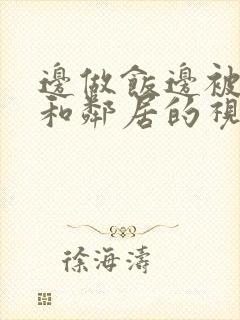 邊做飯邊被
和鄰居的視
徐海濤